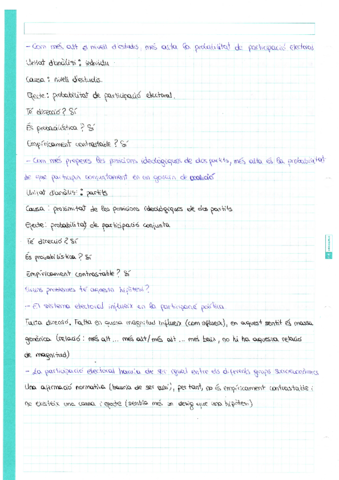 - Com més alt el nivell d'estudis, més alta la probabilitat de participació electoral
Unitat d'anàlisi: individu
Causa: nivell d'estudis.
Efecte: probabilitat de participació electoral.
Té direcció? Sí
És probabilística? Sí
Empíricament contrastable? Sí
- Com més properes les posicions ideològiques de dos partits, més alta és la probabilitat
de que participin conjuntament en un govern de coalició
Unitat d'anàlisi: partits
Causa: proximitat de les posicions ideològiques de dos partits.
Efecte: probabilitat de participació conjunta
Té direcció? Sí
És probabilística? Sí
Empíricament contrastable? Sí
Quins problemes té aquesta hipòtesi?
- El sistema electoral influeix en la participació política
direcció, Falta és quina magnitud influeix (com afecta), en aquest sentit és massa
genèrica (relació: més alt ... més alt / més alt ... més baix, no hi ha aquesta relació
de magnitud)
- La participació electoral hauria de ser igual entre els diferents grups socioeconòmics
Una afirmació normativa (hauria de ser així, per tant, no és empíricament contrastable:
no existeix una causa i efecte (sembla més un desig que una hipòtesi)